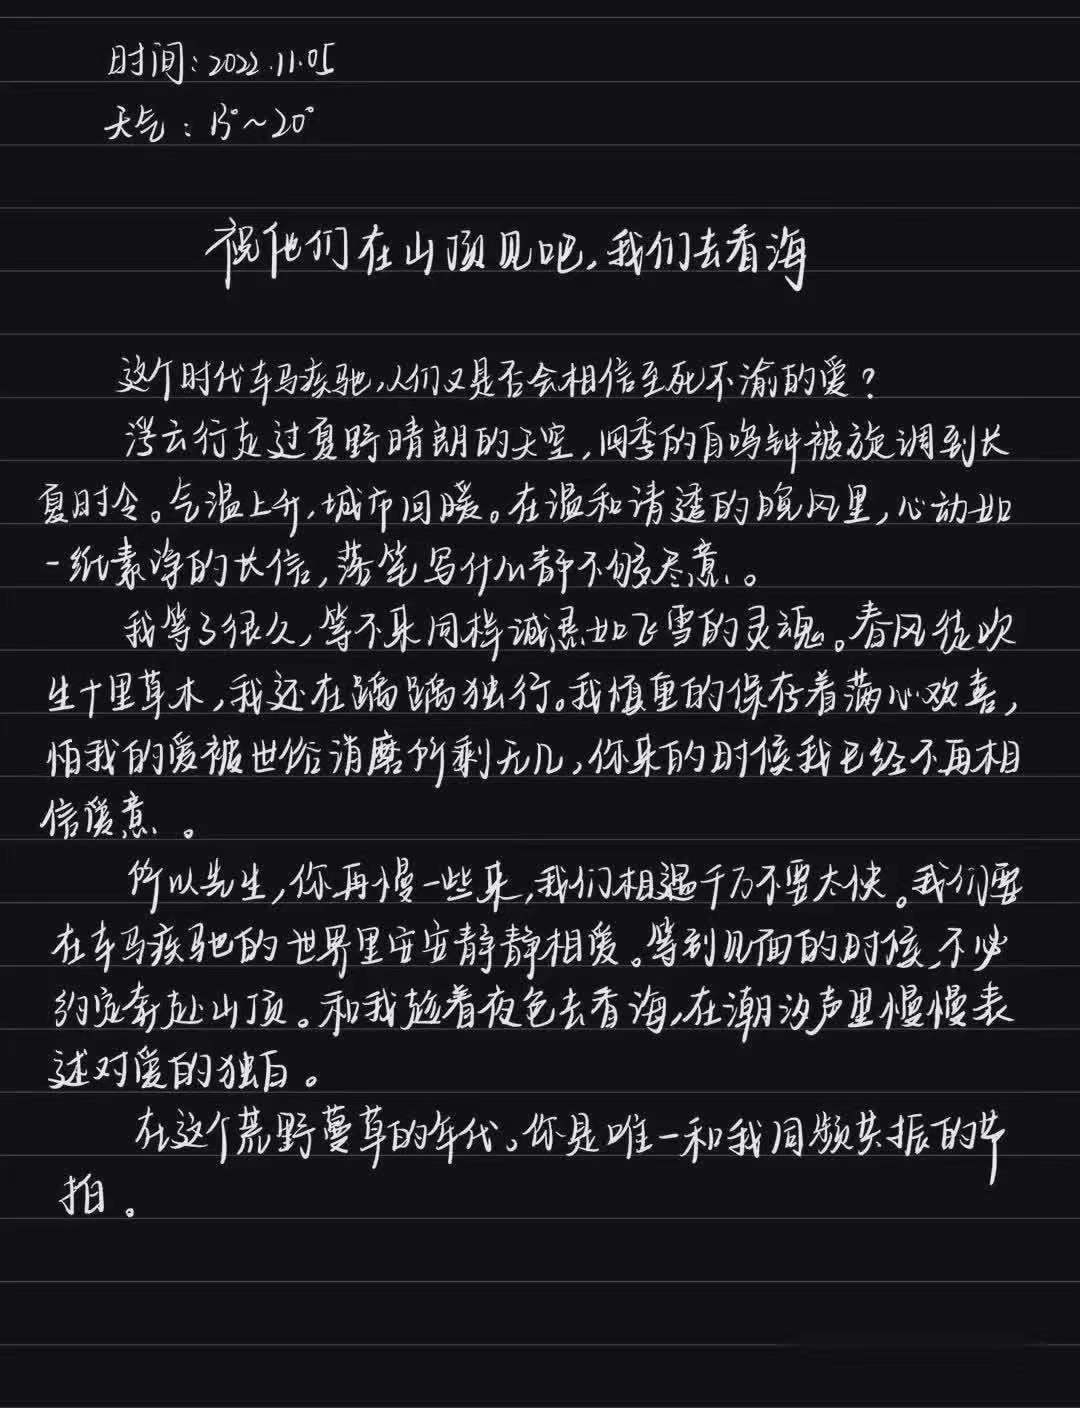 时间:2022.11.05
天气:15°~20°
祝他们在山顶见吧,我们去看海
这个时代车马疾驰,人们又是否会相信至死不渝的爱?
浮云行走过夏野晴朗的天空,四季的自鸣钟被旋调到长
夏时令。气温上升,城市回暖。在温和清透的晚风里,心动如
一纸素净的长信,落笔写什么都不够尽意。
我等了很久,等不来同样诚恳如飞雪的灵魂。春风徒吹
生十里草木,我还在踽踽独行。我慎重的保存着满心欢喜,
怕我的爱被世俗消磨所剩无几,你来的时候我已经不再相
信爱意。
所以先生,你再慢一些来,我们相遇千万不要太快。我们要
在车马疾驰的世界里安安静静相爱。等到见面的时候,不必
约定奔赴山顶。和我趁着夜色去看海,在潮汐声里慢慢表
述对爱的独白。
在这个荒野蔓草的年代,你是唯一和我同频共振的节
拍。